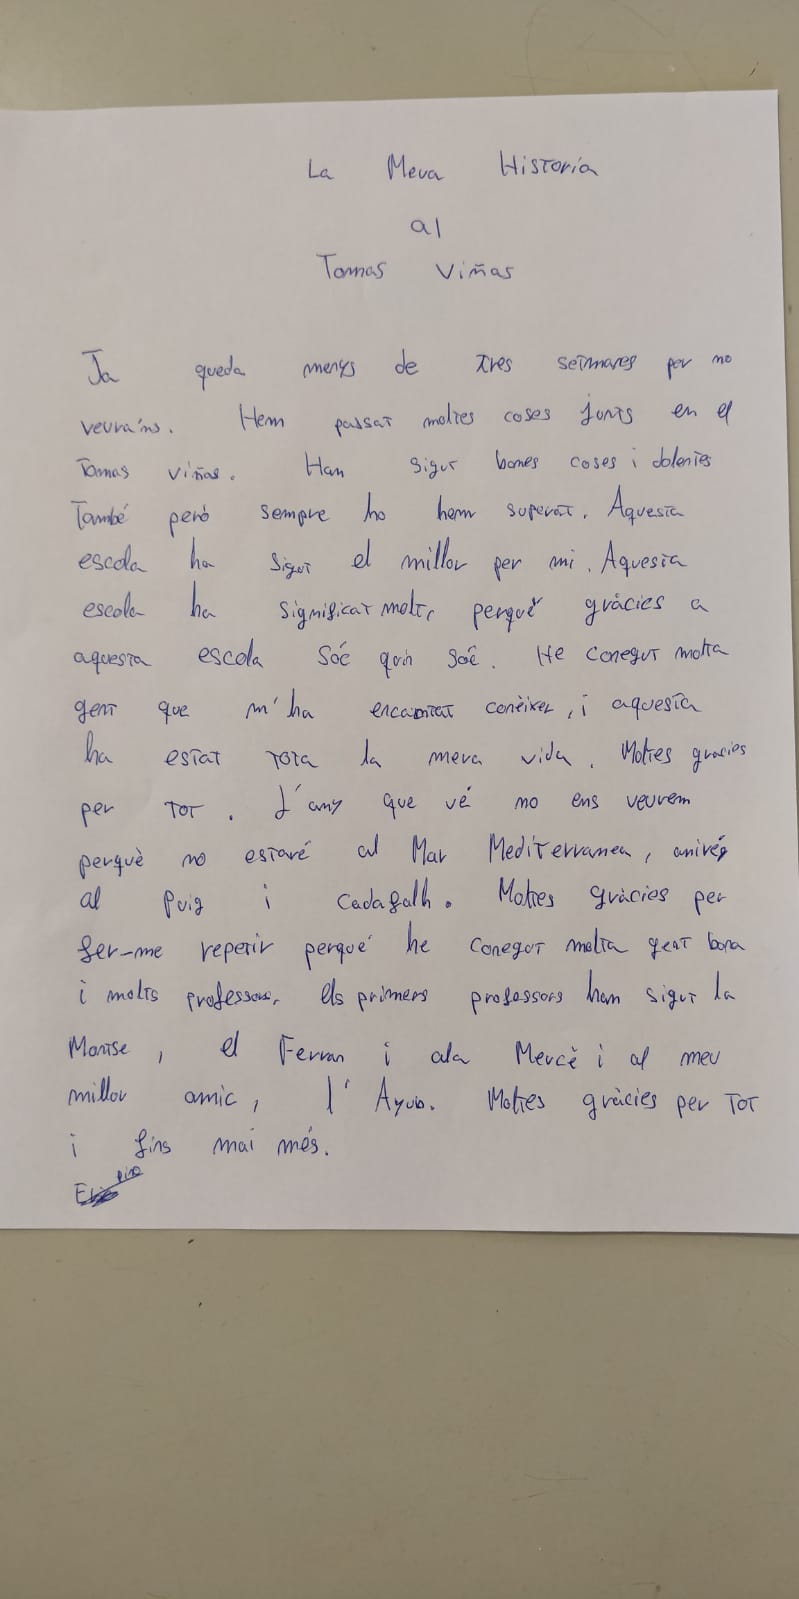 La Meva Historia
al
Tomas Viñas
Ja queda menys de tres setmanes per no
veura'ns. Hem passat moltes coses junts en el
Tomas Viñas. Han sigut bones coses i dolentes
També però sempre ho hem superat. Aquesta
escola ha sigut el millor per mi. Aquesta
escola ha significat molt, perquè gràcies a
aquesta escola sóc quin sóc. He conegut molta
gent que m'ha encantat conèixer, i aquesta
ha estat tota la meva vida. Moltes gracies
per tot. L'any que vé no ens veurem
perquè no estaré al Mar Mediterranea, aniré
al Puig i Cadafalh. Moltes gràcies per
fer-me repetir perqué he conegut molta gent bona
i molts professors. Els primers professors han sigut la
Montse, el Ferran i ala Mercè i al meu
millor amic, l'Ayub. Moltes gràcies per tot
i fins mai més.